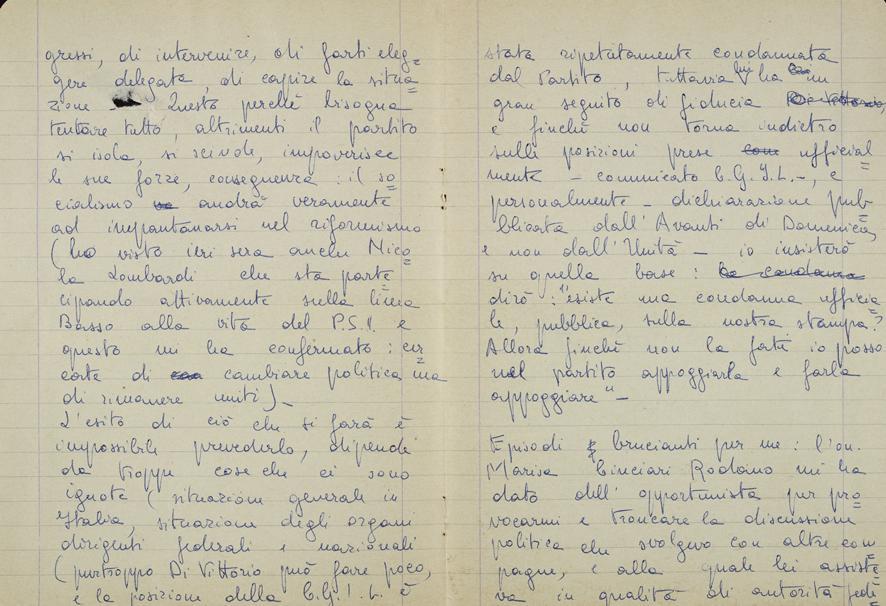 gressi, di intervenire, di farti eleg=
gere delegata, di capire la situa=
zione. Questo perchè bisogna
tentare tutto, altrimenti il partito
si isola, si scinde, impoverisce
le sue forze, conseguenza: il so=
cialismo andrà veramente
ad impantanarsi nel riformismo
(ho visto ieri sera anche Nico=
la Lombardi che sta parte=
cipando attivamente sulla linea
Basso alla vita del P.S.I. e
questo mi ha confermato: cer=
cate di cambiare politica ma
di rimanere uniti)_
L'esito di ciò che si farà è
impossibile prevederlo, dipende
da troppe cose che ci sono
ignote (situazione generale in
Italia, situazione degli organi
dirigenti federali e nazionali
(purtroppo Di Vittorio può fare poco,
e la posizione della C.G.I.L. è
stata ripetutamente condannata
dal Partito, tuttavia lui ha un
gran seguito di fiducia
e finchè non torna indietro
sulle posizioni prese ufficial=
mente - comunicato C.G.I.L. -, e
personalmente - dichiarazione pub=
blicata dall'Avanti di Domenica,
e non dall'Unità - io insisterò
su quella base:
dirò: "esiste una condanna ufficia=
le, pubblica, sulla nostra stampa?
Allora finchè non la fate io posso
nel partito appoggiarla e farla
appoggiare" -
Episodi brucianti per me: l'on.
Marisa Cinciari Rodano mi ha
dato dell'opportunista per pro=
vocarmi e troncare la discussione
politica che svolgevo con altre com=
pagne, e alla quale lei assiste=
va in qualità di autorità fede=